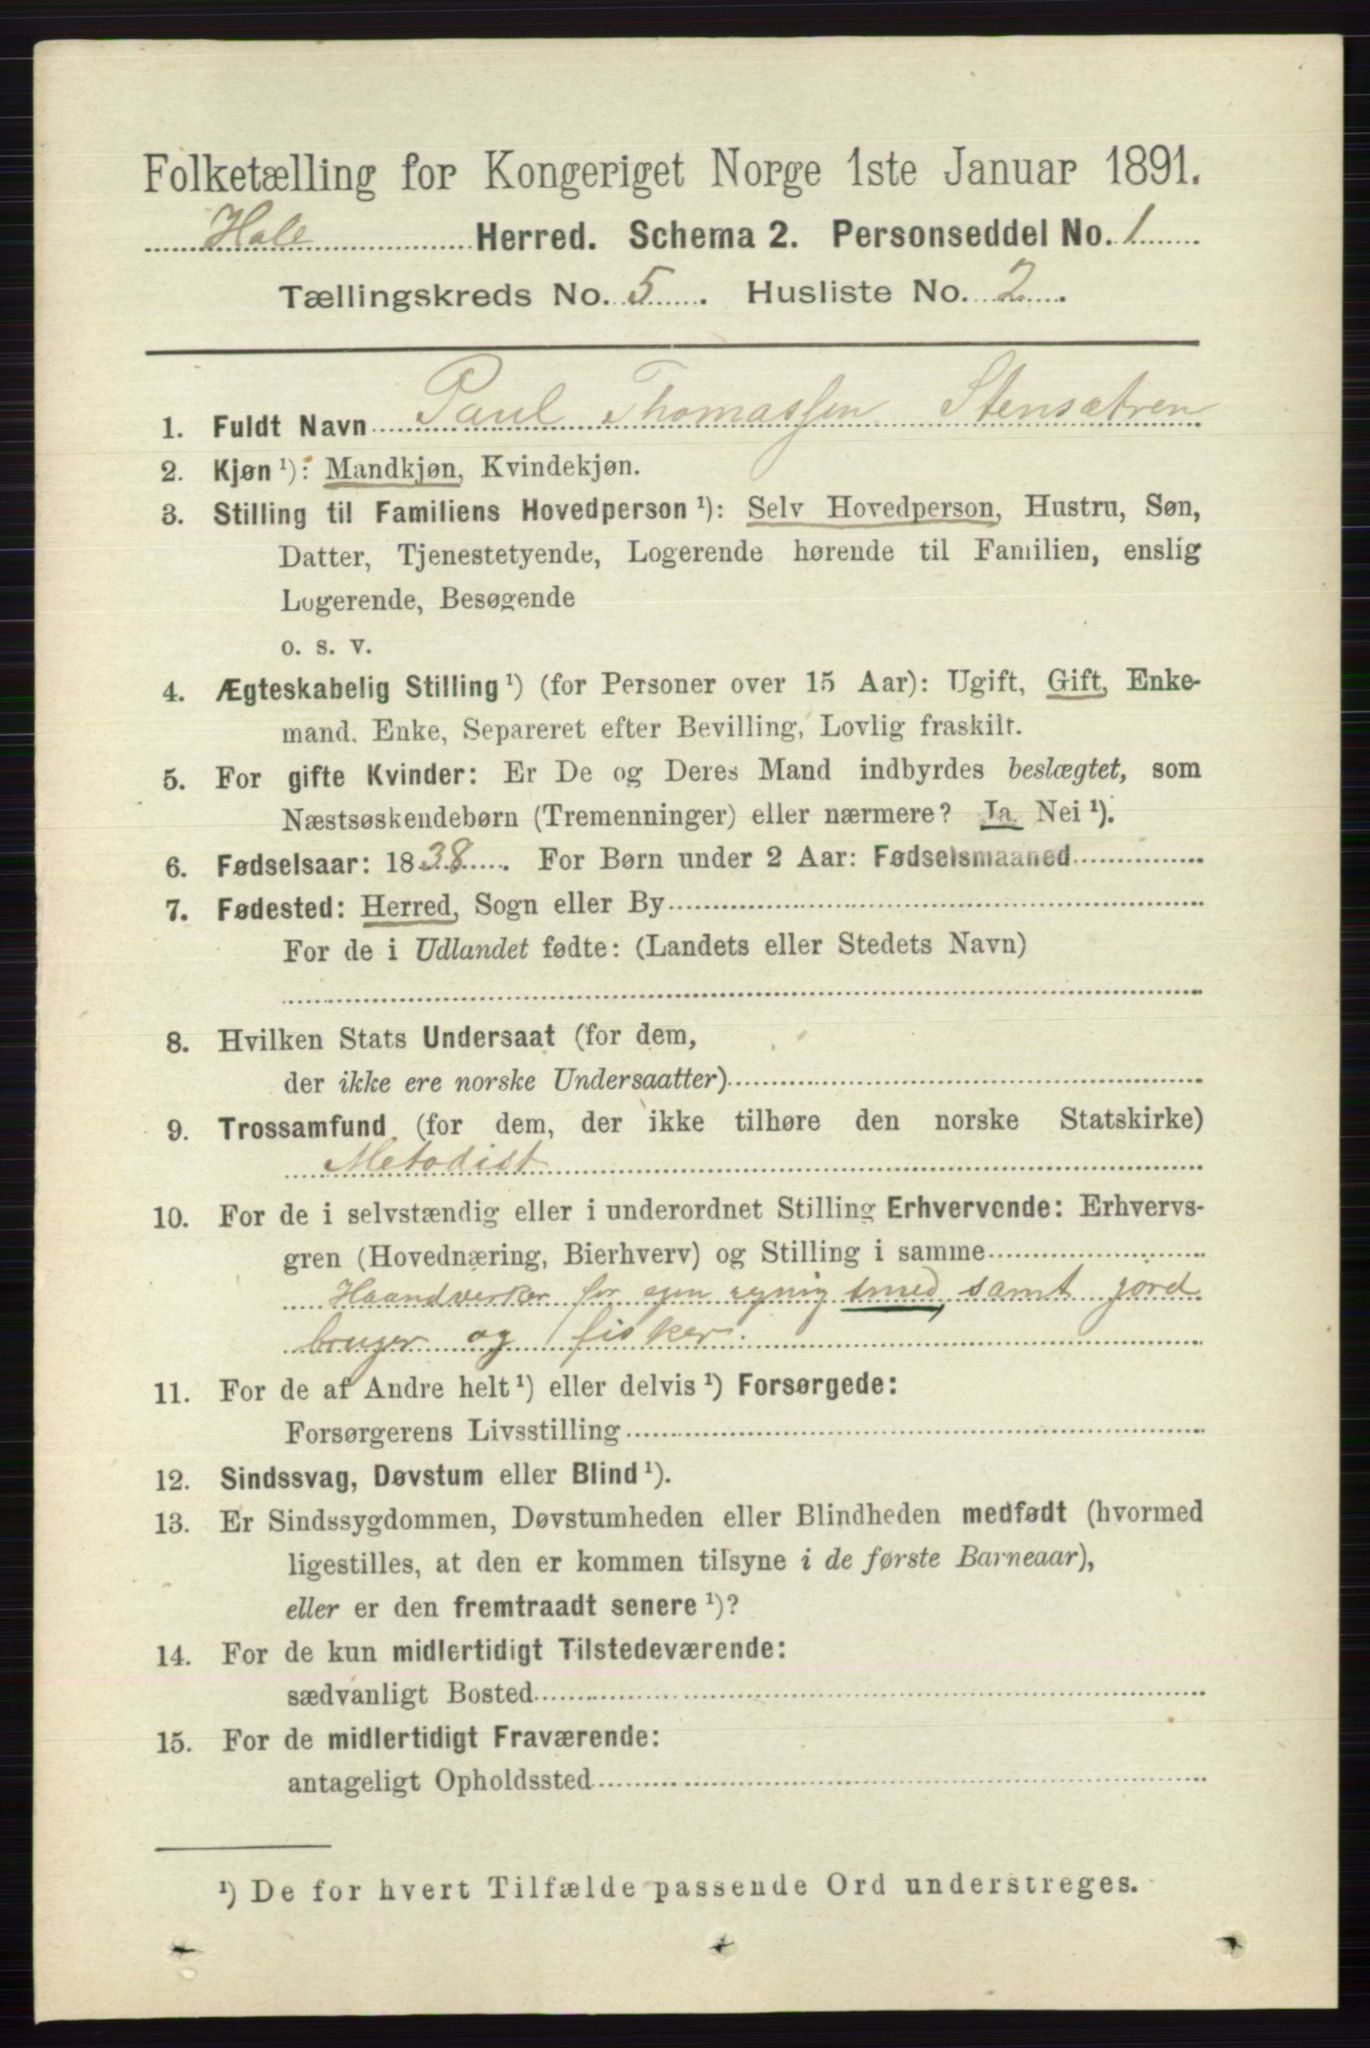 Folketælling for Kongeriget Norge 1ste Januar 1891.
Hole Herred. Schema 2. Personseddel No. 1
Tællingskreds No. 5. Husliste No. 2.
1. Fuldt Navn Paul Thomassen Stensætren
2. Kjøn ¹): Mandkjøn, Kvindekjøn.
3. Stilling til Familiens Hovedperson ¹): Selv Hovedperson, Hustru, Søn,
Datter, Tjenestetyende, Logerende hørende til Familien, enslig
Logerende, Besøgende
o. s. v.
4. Ægteskabelig Stilling ¹) (for Personer over 15 Aar): Ugift, Gift, Enke-
mand, Enke, Separeret efter Bevilling, Lovlig fraskilt.
5. For gifte Kvinder: Er De og Deres Mand indbyrdes beslægtet, som
Næstsøskendebørn (Tremenninger) eller nærmere? Ja. Nei ¹).
6. Fødselsaar: 1838. For Børn under 2 Aar: Fødselsmaaned
7. Fødested: Herred, Sogn eller By
For de i Udlandet fødte: (Landets eller Stedets Navn)
8. Hvilken Stats Undersaat (for dem,
der ikke ere norske Undersaatter)
9. Trossamfund (for dem, der ikke tilhøre den norske Statskirke)
Metodist
10. For de i selvstændig eller i underordnet Stilling Erhvervende: Erhvervs-
gren (Hovednæring, Bierhverv) og Stilling i samme
Haandverker for egen regnig smed, samt jord
bruger og fisker.
11. For de af Andre helt ¹) eller delvis ¹) Forsørgede:
Forsørgerens Livsstilling
12. Sindssvag, Døvstum eller Blind ¹).
13. Er Sindssygdommen, Døvstumheden eller Blindheden medfødt (hvormed
ligestilles, at den er kommen tilsyne i de første Barneaar),
eller er den fremtraadt senere ¹)?
14. For de kun midlertidigt Tilstedeværende:
sædvanligt Bosted
15. For de midlertidigt Fraværende:
antageligt Opholdssted
¹) De for hvert Tilfælde passende Ord understreges.